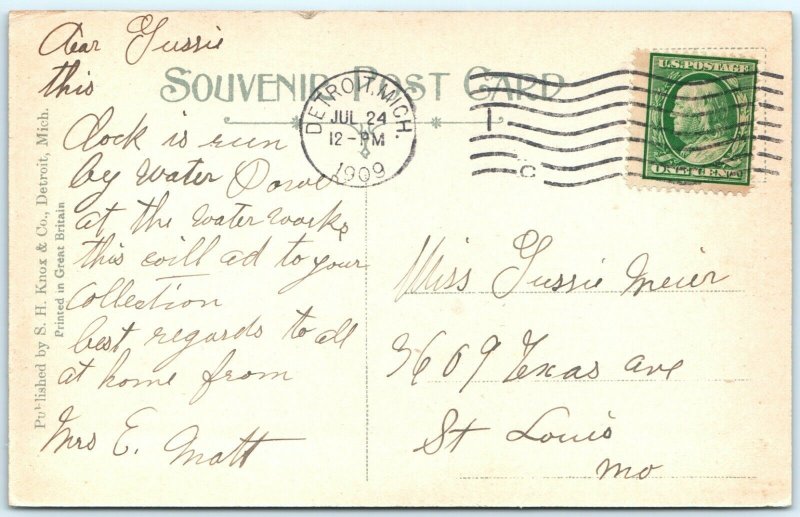 SOUVENIR POST CARD
Dear Gussie
this
clock is run
by water Power
at the water works
this will ad to your
Collection
best regards to all
at home from
Mrs E. Matt
DETROIT, MICH.
JUL 24
12-PM
1909
U.S. POSTAGE
ONE CENT
Miss Gussie Meier
3609 Texas ave
St Louis
Mo
Published by S. H. Knox & Co., Detroit, Mich.
Printed in Great Britain